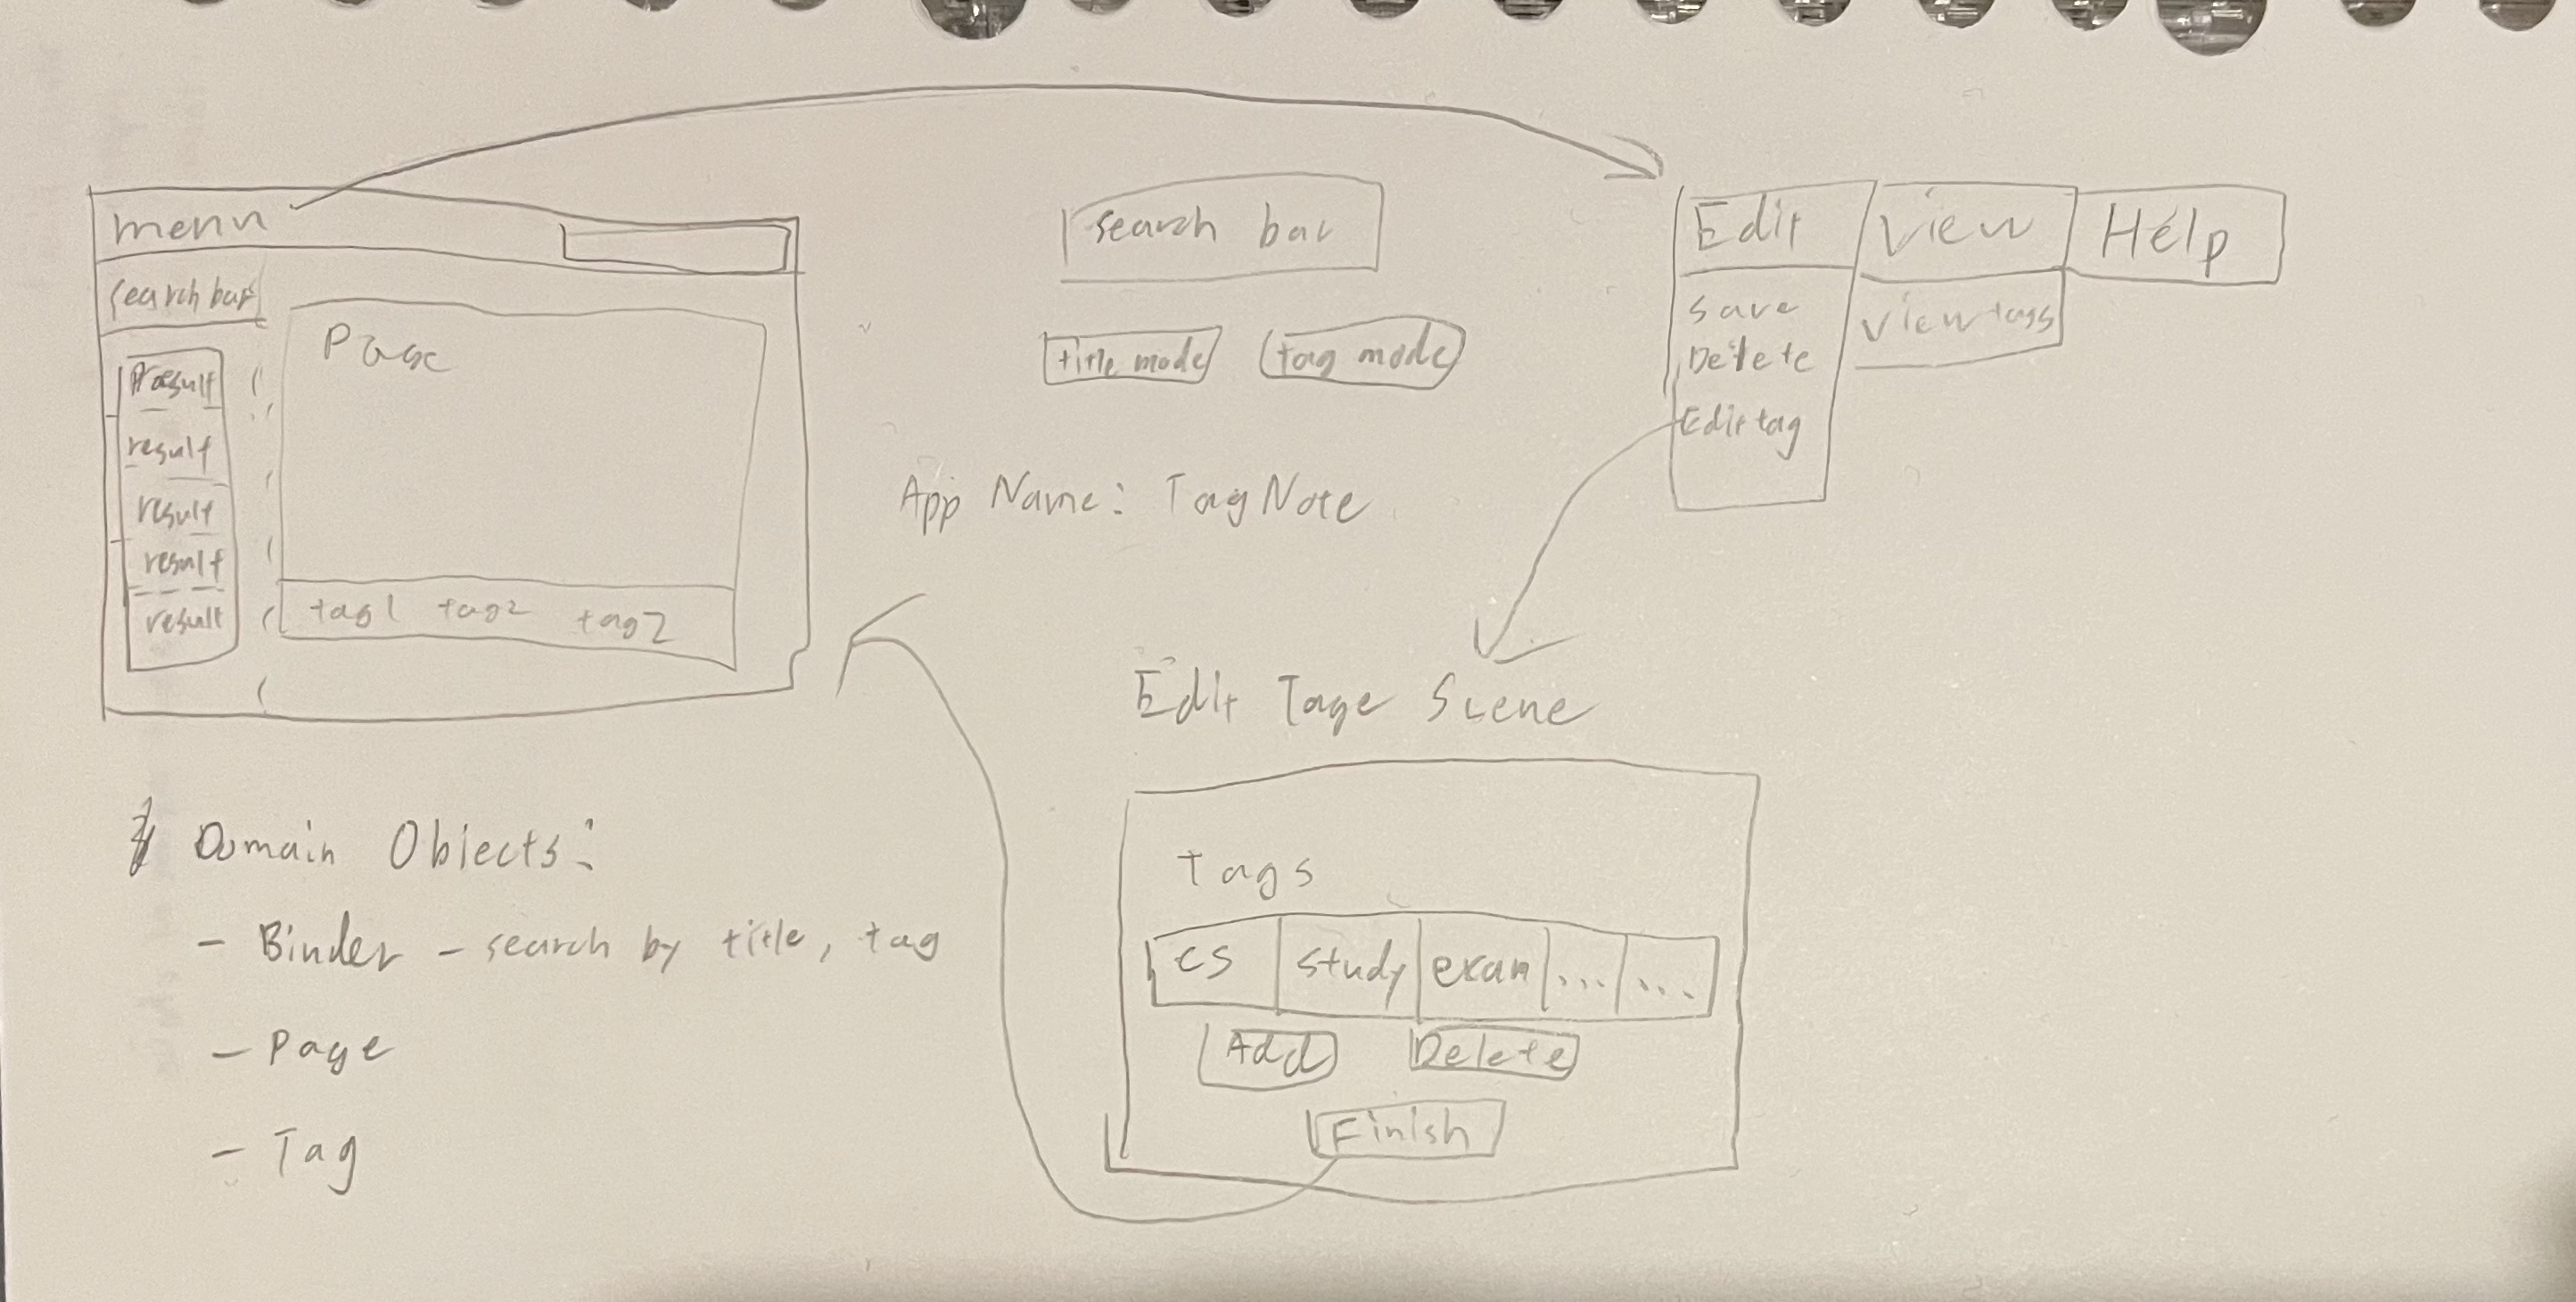 menu
search bar
result
result
result
result
result
Page
tag1 tag2 tag2
search bar
title mode tag mode
App Name: TagNote
Edit View Help
Save
Delete
Edit tag
View tags
Edit Tage Scene
Tags
cs study exam ... ...
Add Delete
Finish
Domain Objects:
- Binder - search by title, tag
- Page
- Tag